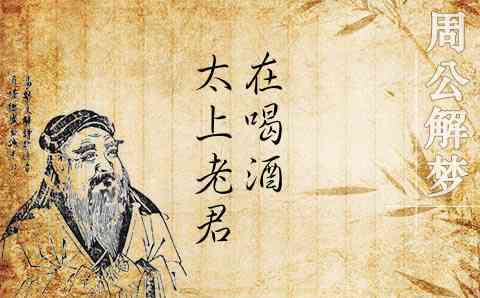 周公解梦
在喝酒
太上老君